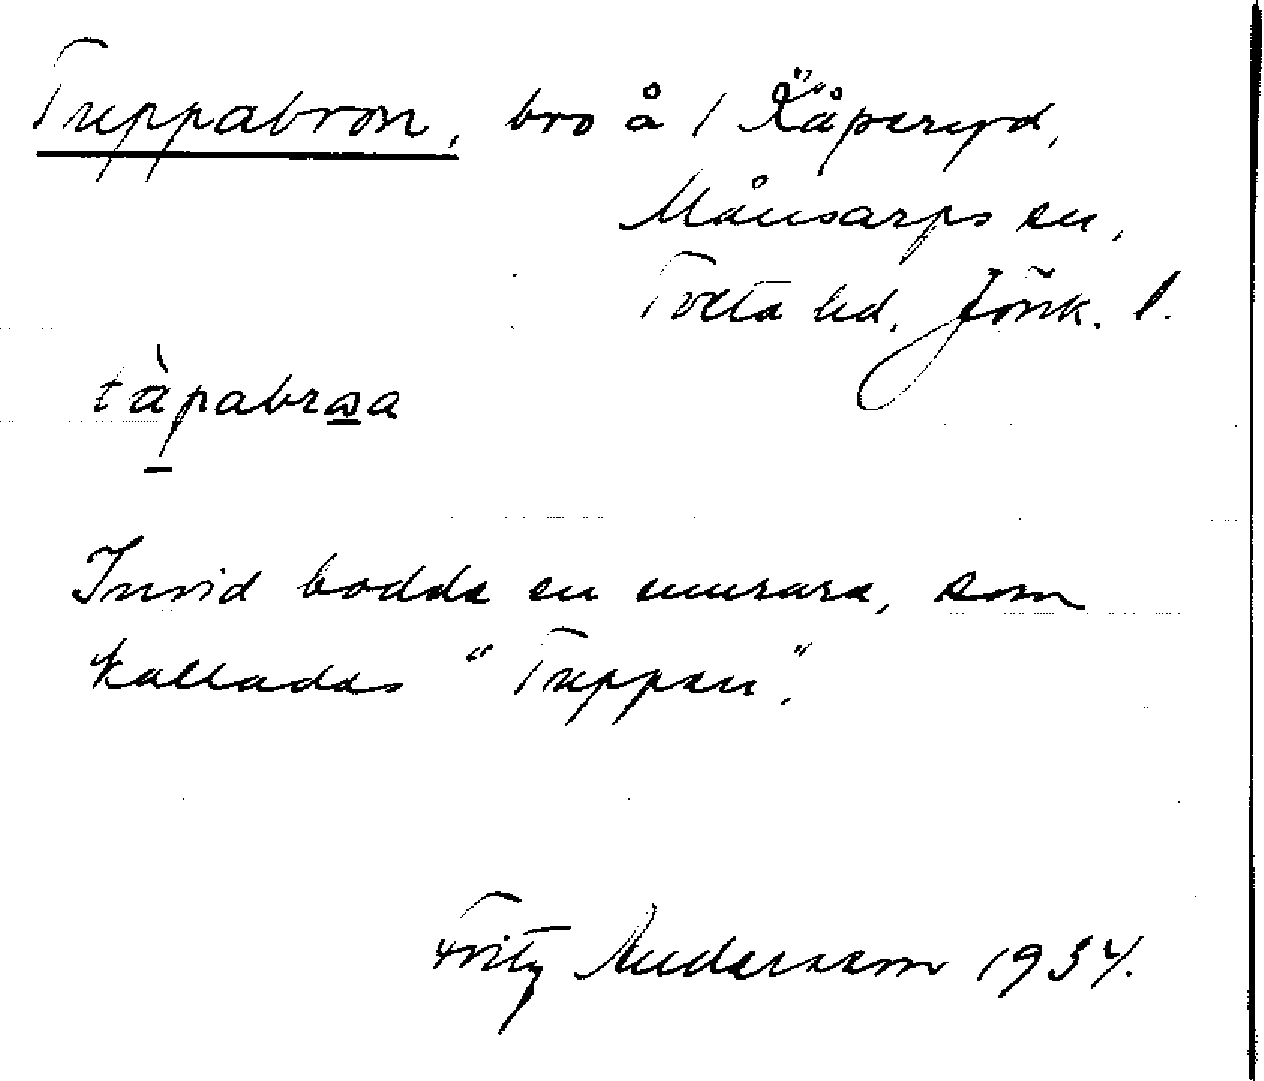 Treppabron, bro å / Kåperyd,
Månsarps sn,
Tveta hd, Jönk. l.
tàpabrωa
Invid bodde en murare, som
kallades "Treppen".
Fritz Andersson 1934.